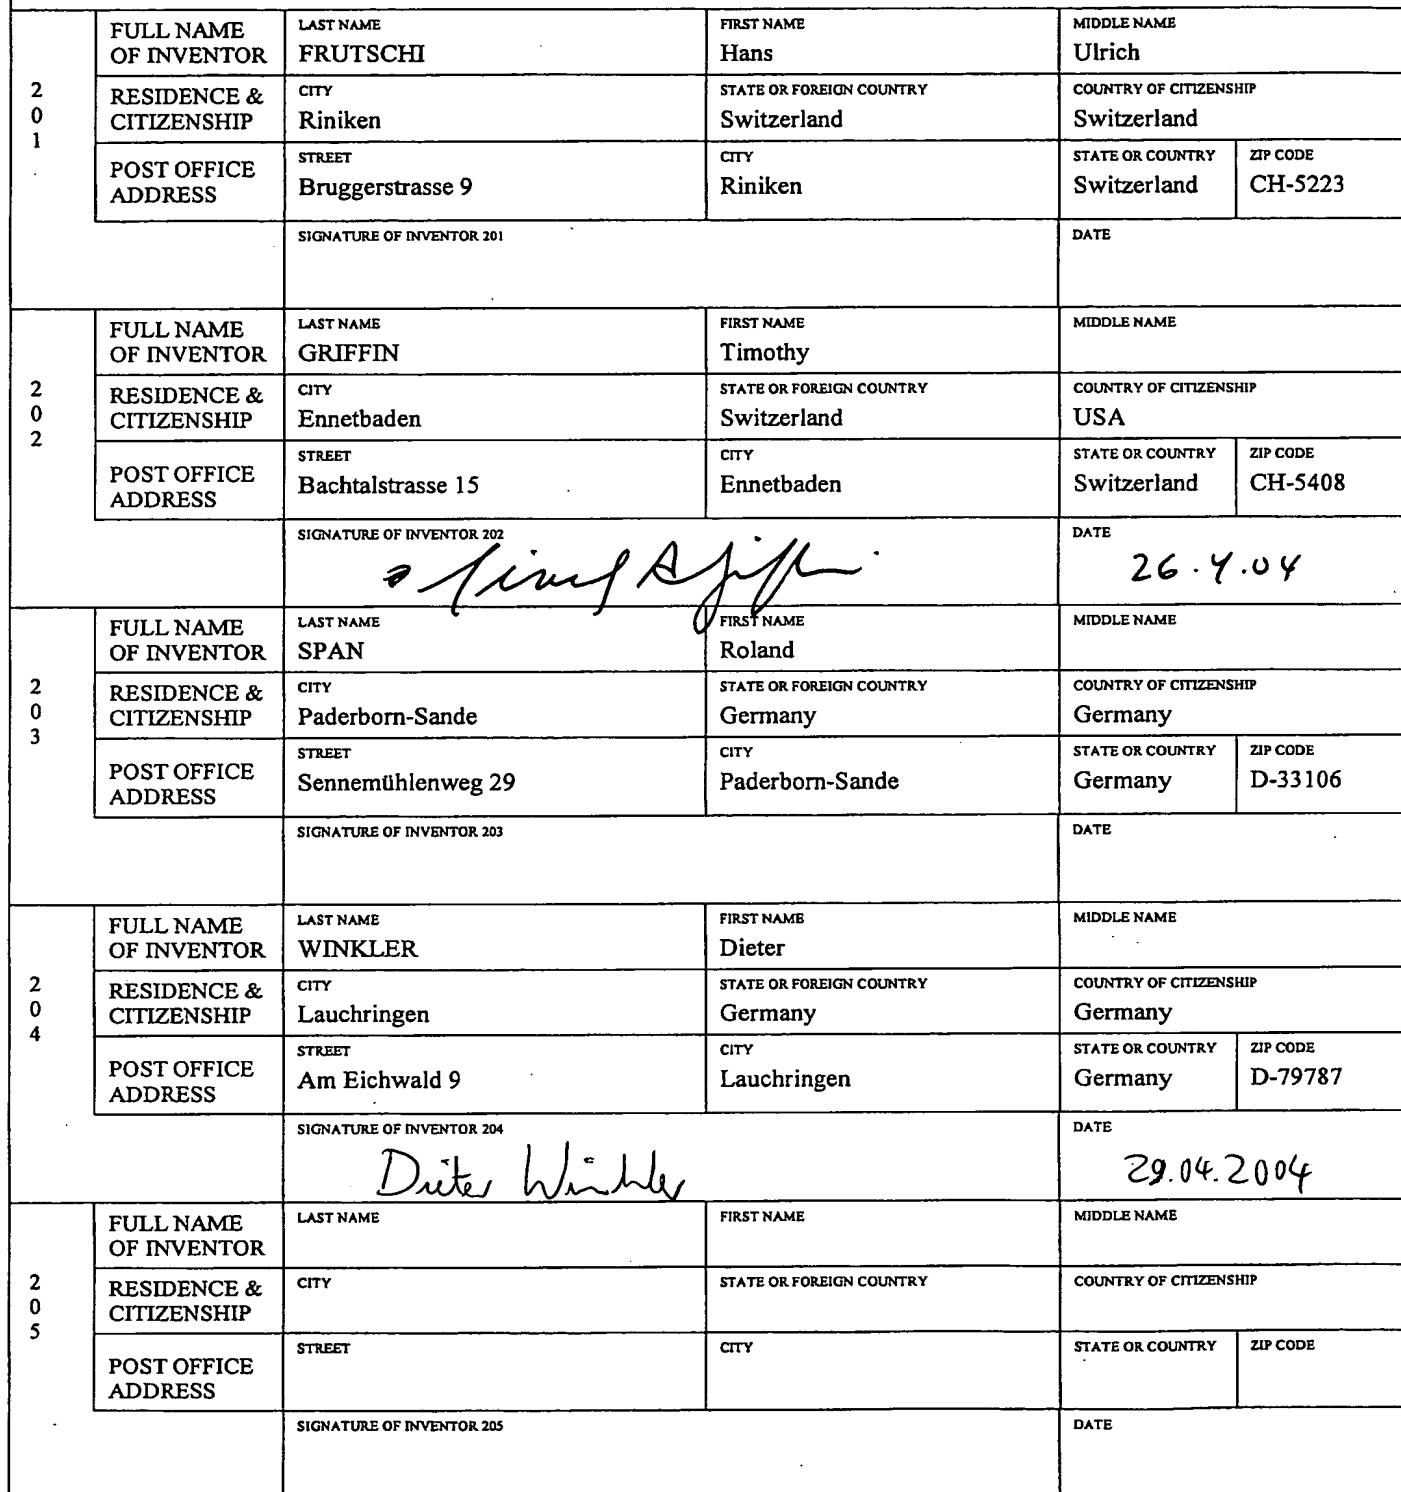 FULL NAME OF INVENTOR LAST NAME FRUTSCHI FIRST NAME Hans MIDDLE NAME Ulrich
201
RESIDENCE & CITIZENSHIP CITY Riniken STATE OR FOREIGN COUNTRY Switzerland COUNTRY OF CITIZENSHIP Switzerland
POST OFFICE ADDRESS STREET Bruggerstrasse 9 CITY Riniken STATE OR COUNTRY Switzerland ZIP CODE CH-5223
SIGNATURE OF INVENTOR 201 DATE
FULL NAME OF INVENTOR LAST NAME GRIFFIN FIRST NAME Timothy MIDDLE NAME
202
RESIDENCE & CITIZENSHIP CITY Ennetbaden STATE OR FOREIGN COUNTRY Switzerland COUNTRY OF CITIZENSHIP USA
POST OFFICE ADDRESS STREET Bachtalstrasse 15 CITY Ennetbaden STATE OR COUNTRY Switzerland ZIP CODE CH-5408
SIGNATURE OF INVENTOR 202 DATE 26.4.04
FULL NAME OF INVENTOR LAST NAME SPAN FIRST NAME Roland MIDDLE NAME
203
RESIDENCE & CITIZENSHIP CITY Paderborn-Sande STATE OR FOREIGN COUNTRY Germany COUNTRY OF CITIZENSHIP Germany
POST OFFICE ADDRESS STREET Sennemühlenweg 29 CITY Paderborn-Sande STATE OR COUNTRY Germany ZIP CODE D-33106
SIGNATURE OF INVENTOR 203 DATE
FULL NAME OF INVENTOR LAST NAME WINKLER FIRST NAME Dieter MIDDLE NAME
204
RESIDENCE & CITIZENSHIP CITY Lauchringen STATE OR FOREIGN COUNTRY Germany COUNTRY OF CITIZENSHIP Germany
POST OFFICE ADDRESS STREET Am Eichwald 9 CITY Lauchringen STATE OR COUNTRY Germany ZIP CODE D-79787
SIGNATURE OF INVENTOR 204 Dieter Winkler DATE 29.04.2004
FULL NAME OF INVENTOR LAST NAME FIRST NAME MIDDLE NAME
205
RESIDENCE & CITIZENSHIP CITY STATE OR FOREIGN COUNTRY COUNTRY OF CITIZENSHIP
POST OFFICE ADDRESS STREET CITY STATE OR COUNTRY ZIP CODE
SIGNATURE OF INVENTOR 205 DATE